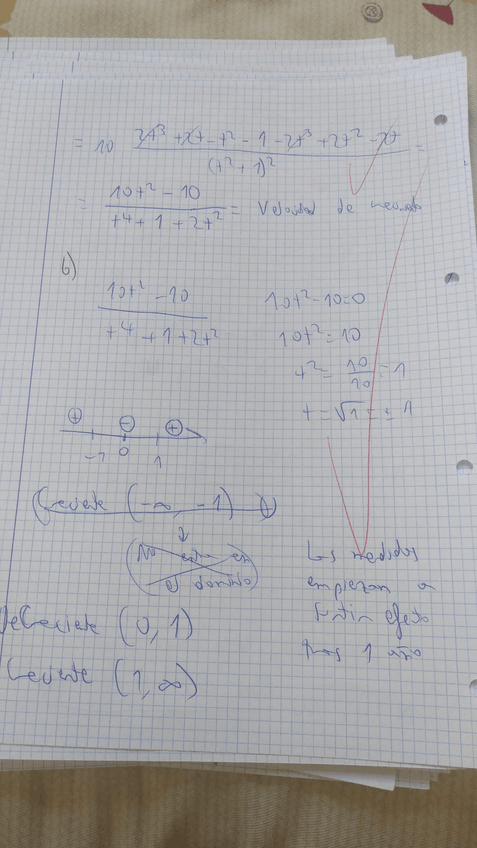 = 10 (3t³ + 2t - t² - 1 - 2t³ + 2t² - 2t) / (t² + 1)² =
= (10t² - 10) / (t⁴ + 1 + 2t²) = Velocidad de
b)
(10t² - 10) / (t⁴ + 1 + 2t²)
10t² - 10 = 0
10t² = 10
t² = 10/10 = 1
t = √1 = ± 1
⊕ ⊖ ⊕
-1 0 1
Creciente (-∞, -1) ∪
↓
(No esta en
el dominio)
DeCreciente (0, 1)
Creciente (1, ∞)
Las medidas
empiezan a
surtir efecto
tras 1 año